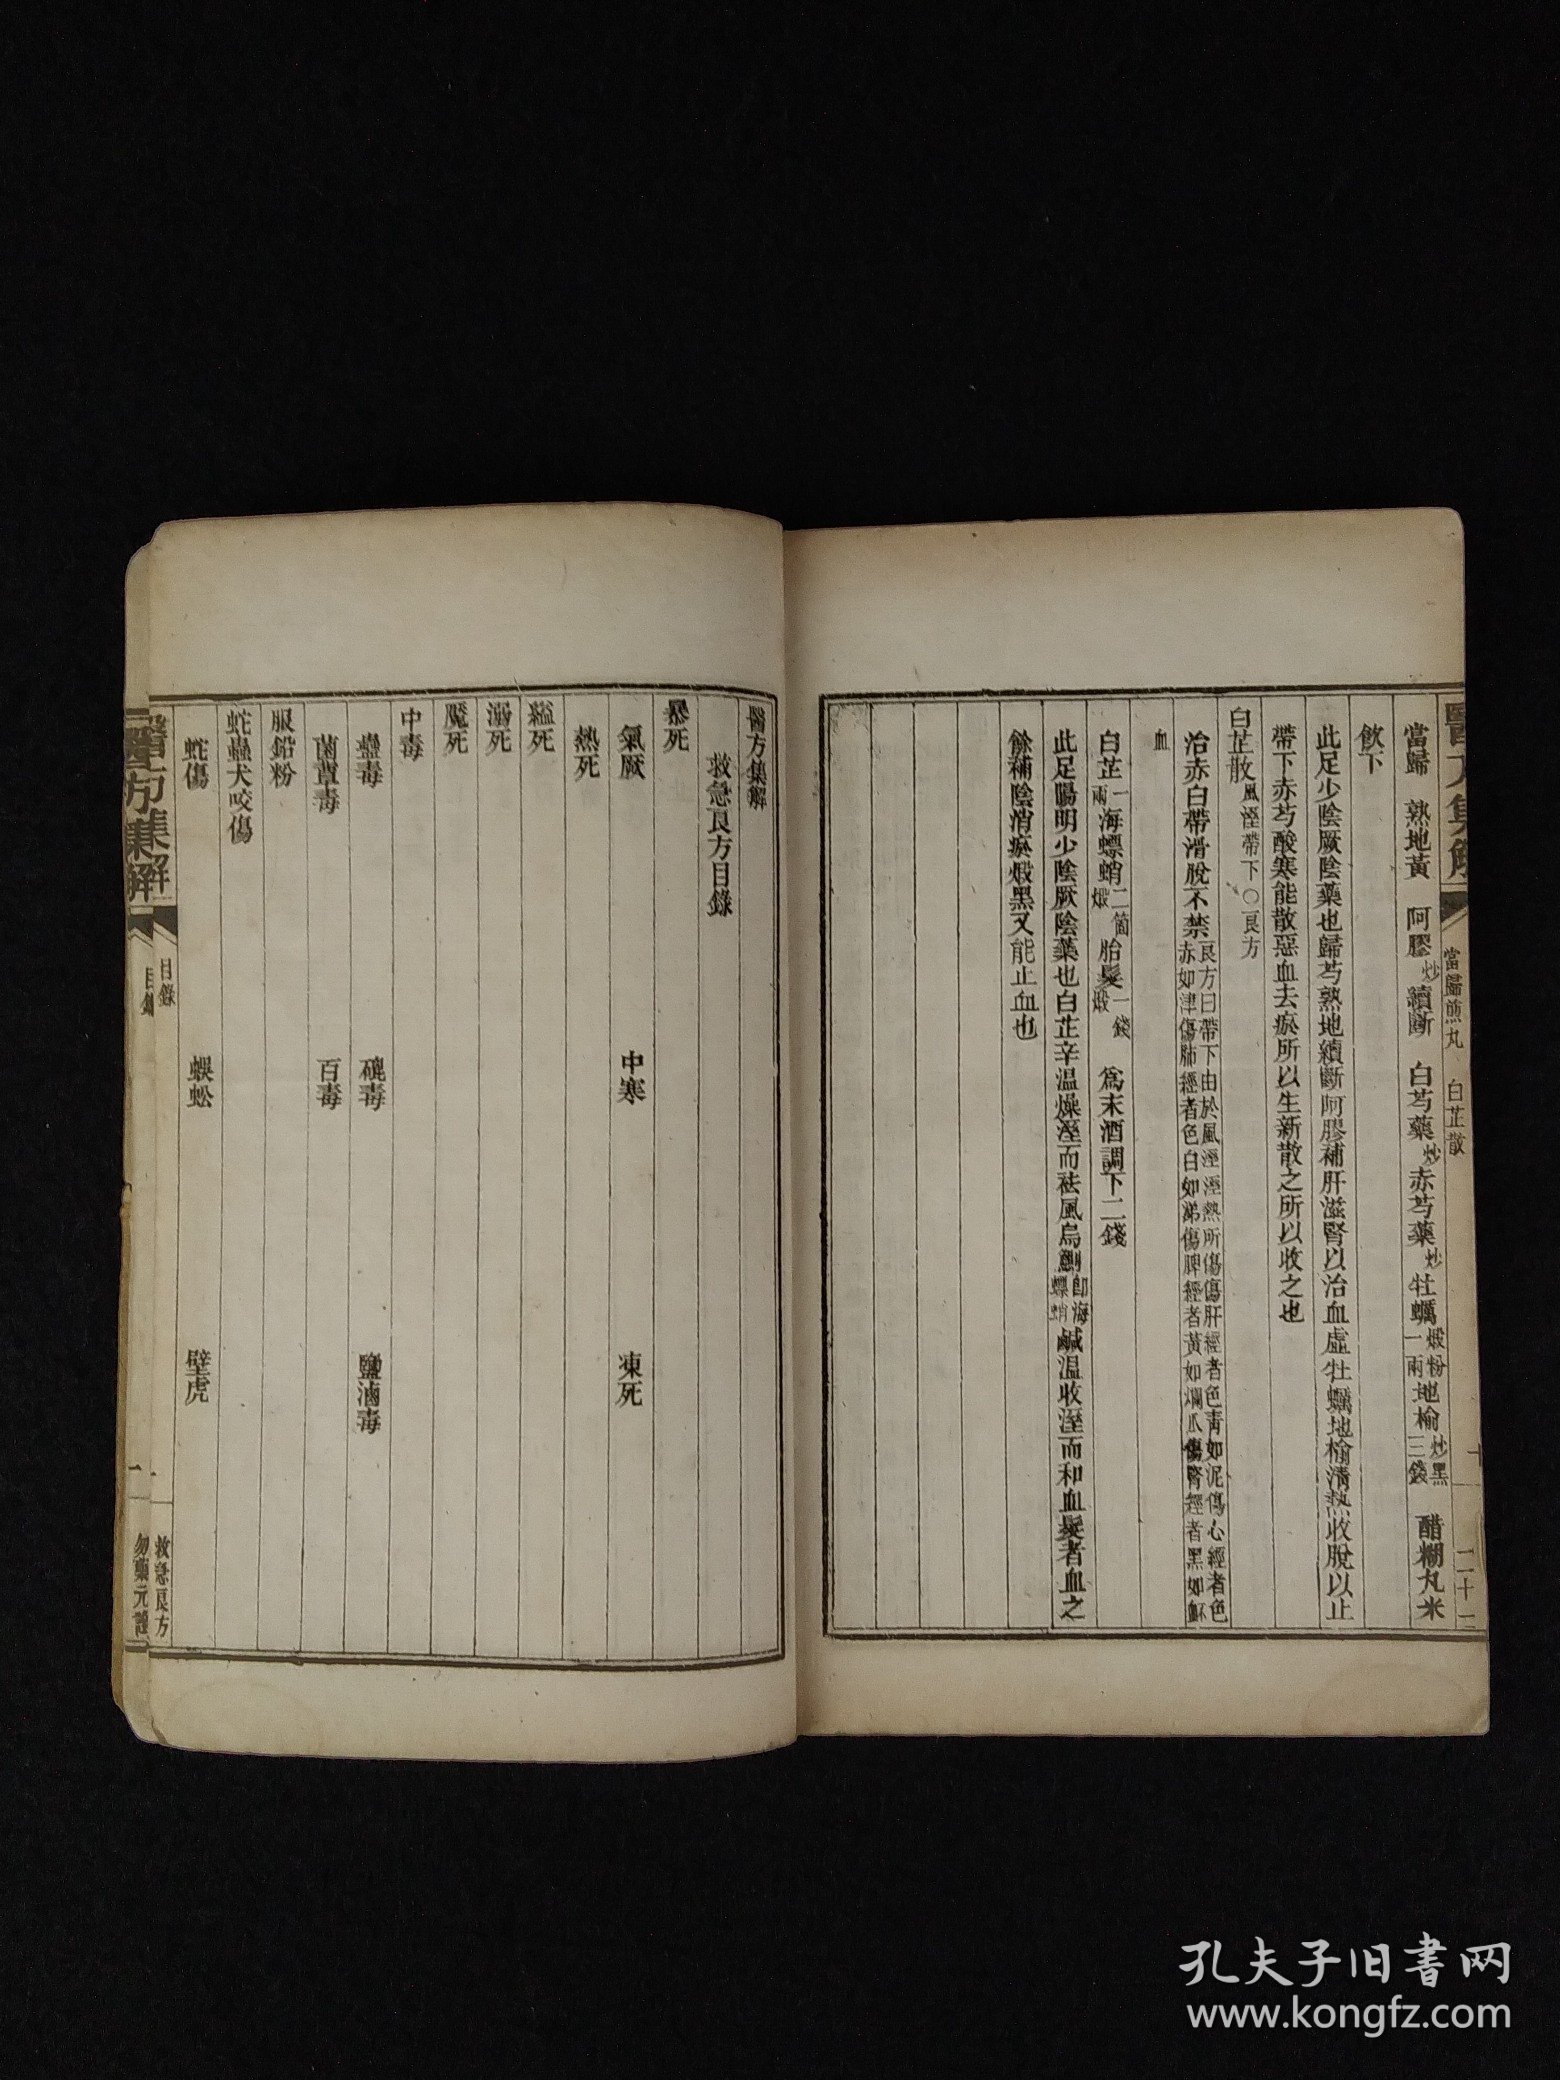 當歸 熟地黃 阿膠炒續斷 白芍藥炒赤芍藥炒牡蠣煅粉一兩地榆炒黑三錢 醋糊丸米
飲下
此足少陰厥陰藥也歸芍熟地續斷阿膠補肝滋腎以治血虛牡蠣地榆清熱收脫以止
帶下赤芍酸寒能散惡血去瘀所以生新散之所以收之也
白芷散風溼帶下○良方
治赤白帶滑脫不禁良方曰帶下由於風溼溼熱所傷傷肝經者色青如泥傷心經者色赤如津傷肺經者色白如涕傷脾經者黃如爛瓜傷腎經者黑如衃
血
白芷一兩海螵蛸二箇煅胎髮一錢煅 爲末酒調下二錢
此足陽明少陰厥陰藥也白芷辛溫燥溼而袪風烏鰂即海螵蛸鹹溫收溼而和血髮者血之
餘補陰消瘀煅黑又能止血也
當歸煎丸 白芷散
二十一
醫方集解
救急良方目錄
暴死
氣厥 中寒 凍死
熱死
縊死
溺死
魘死
中毒
蠱毒 砒毒 鹽滷毒
菌蕈毒 百毒
服鉛粉
蛇蟲犬咬傷
蛇傷 蜈蚣 壁虎
醫方集解
目錄
一
救急良方
孔夫子旧书网
www.kongfz.com